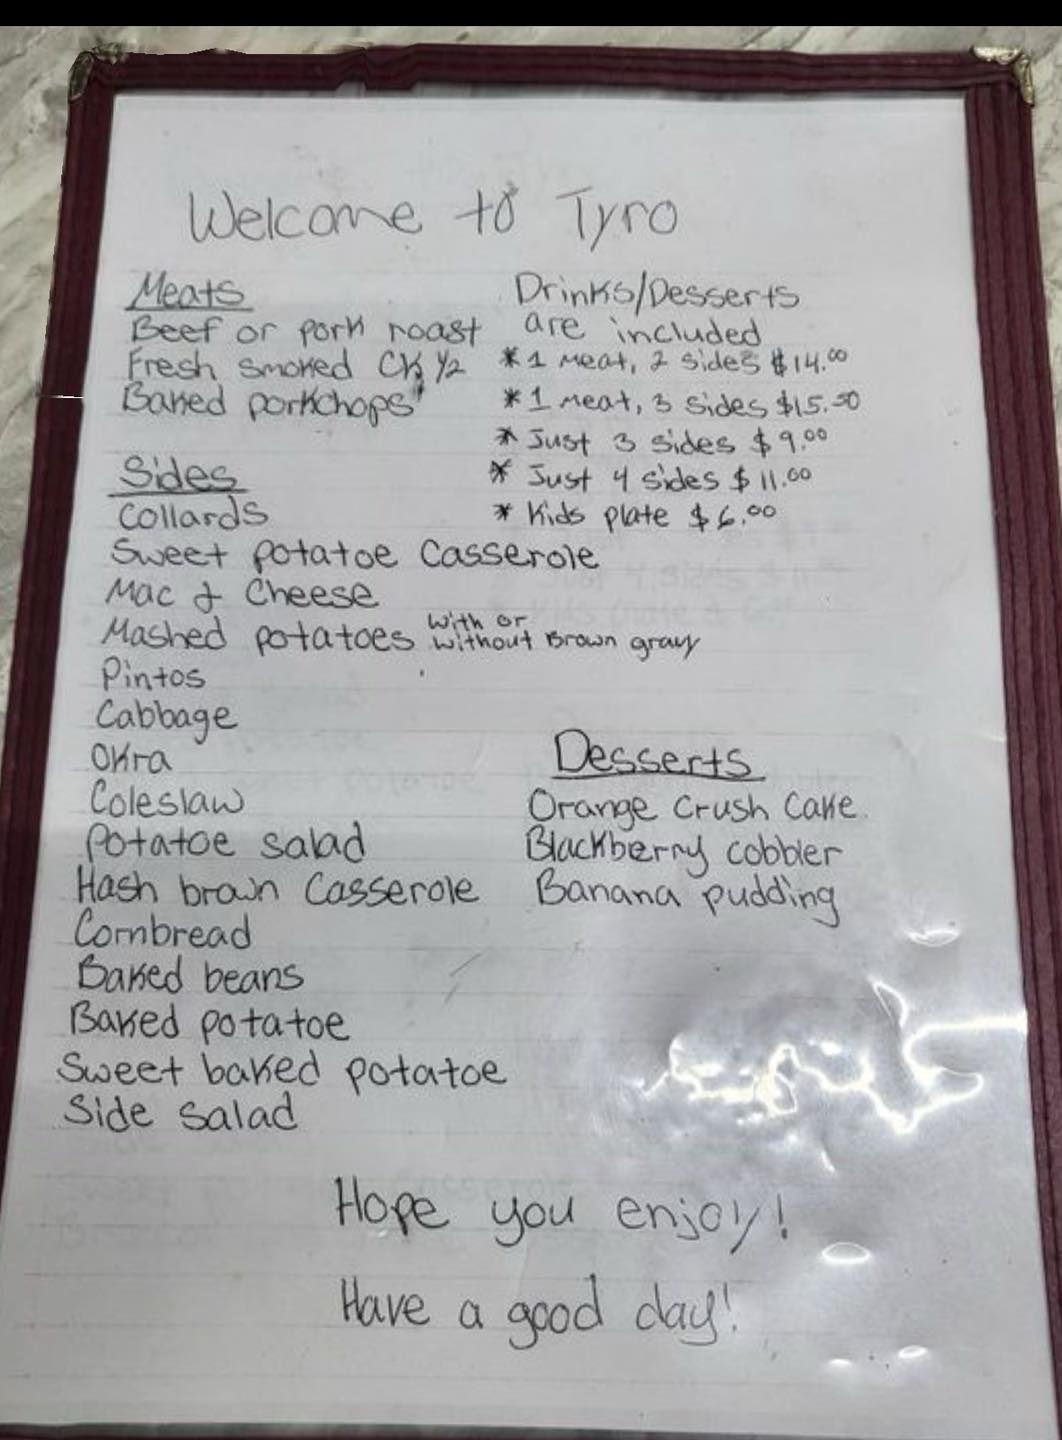 Welcome to Tyro
Meats
Beef or pork roast
Fresh smoked CK 1/2
Baked porkchops
Drinks/Desserts
are included
* 1 meat, 2 sides $14.00
* 1 meat, 3 sides $15.50
* Just 3 sides $9.00
* Just 4 sides $11.00
* Kids plate $6.00
Sides
Collards
Sweet potatoe Casserole
Mac & Cheese
Mashed potatoes with or without Brown gravy
Pintos
Cabbage
Okra
Coleslaw
Potatoe salad
Hash brown Casserole
Cornbread
Baked beans
Baked potatoe
Sweet baked potatoe
Side salad
Desserts
Orange Crush Cake
Blackberry cobbler
Banana pudding
Hope you enjoy!
Have a good day!